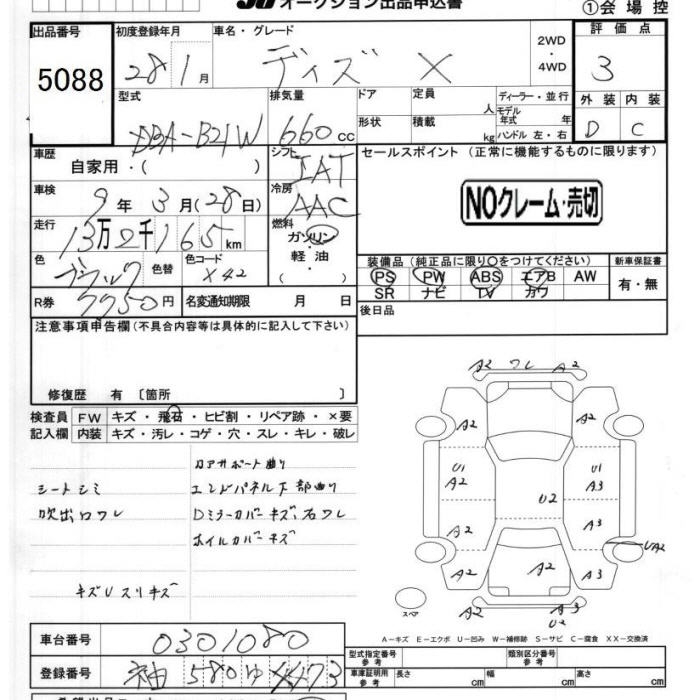 オークション出品申込書
①会場控
出品番号 5088
初度登録年月 28 1月
車名・グレード ディズ X
2WD・4WD
評価点 3
型式 DBA-B21W
排気量 660cc
ドア 定員 人
形状 積載 kg
ディーラー・並行
モデル年式 年
ハンドル 左・右
外装 内装
D C
車歴 自家用・( )
シフト IAT
セールスポイント (正常に機能するものに限ります)
NOクレーム・売切
車検 9年3月28日
冷房 AAC
走行 13万2千165km
燃料 ガソリン 軽油
色 ブラック 色替 色コード X42
装備品(純正品に限り○をつけてください)
新車保証書
PS PW ABS エアB AW
SR ナビ TV カワ
有・無
R券 7750円 名変通知期限 月 日
後日品
注意事項申告欄(不具合内容等は具体的に記入して下さい)
修復歴 有〔箇所 〕
検査員記入欄
FW キズ・飛石・ヒビ割・リペア跡・×要
内装 キズ・汚レ・コゲ・穴・スレ・キレ・破レ
コアサポート曲り
シートシミ エンドパネル下部曲り
吹出口ワレ Dミラーカバーキズ、右ワレ
ホイルカバーキズ
キズUスリキズ
A2 ワレ A2
A2 A2
U1 A2 U1 A3
U2
A2 A3
UA2
A2 A2 A3
スペア
A2 A3
U2
A-キズ E-エクボ U-凹み W-補修跡 S-サビ C-腐食 XX-交換済
車台番号 0301080
登録番号 袖 580ゆ4473
型式指定番号 参考 類別区分番号 参考
車庫証明用 参考 長さ cm 幅 cm 高さ cm